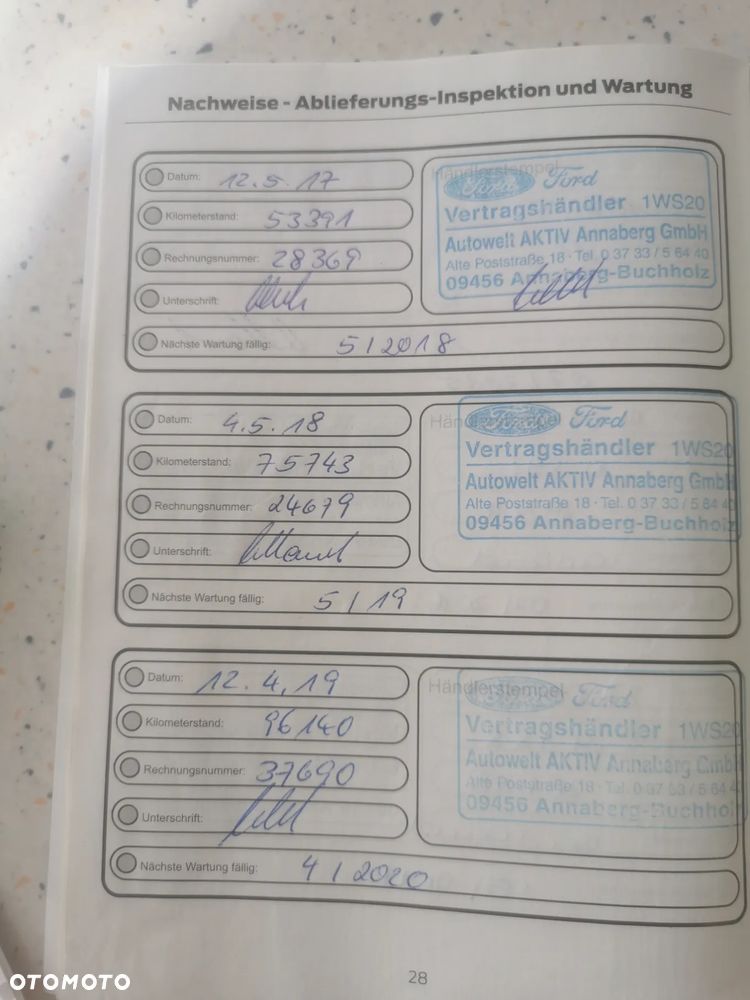 Nachweise - Ablieferungs-Inspektion und Wartung
Datum: 12.5.17
Kilometerstand: 53391
Rechnungsnummer: 28369
Unterschrift:
Nächste Wartung fällig: 5/2018
Händlerstempel
Ford Ford
Vertragshändler 1WS20
Autowelt AKTIV Annaberg GmbH
Alte Poststraße 18 · Tel. 0 37 33 / 5 64 40
09456 Annaberg-Buchholz
Datum: 4.5.18
Kilometerstand: 75743
Rechnungsnummer: 24679
Unterschrift:
Nächste Wartung fällig: 5/19
Händlerstempel
Ford Ford
Vertragshändler 1WS20
Autowelt AKTIV Annaberg GmbH
Alte Poststraße 18 · Tel. 0 37 33 / 5 64 40
09456 Annaberg-Buchholz
Datum: 12.4.19
Kilometerstand: 96140
Rechnungsnummer: 37690
Unterschrift:
Nächste Wartung fällig: 4/2020
Händlerstempel
Ford Ford
Vertragshändler 1WS20
Autowelt AKTIV Annaberg GmbH
Alte Poststraße 18 · Tel. 0 37 33 / 5 64 4
09456 Annaberg-Buchhol
28
OTOMOTO